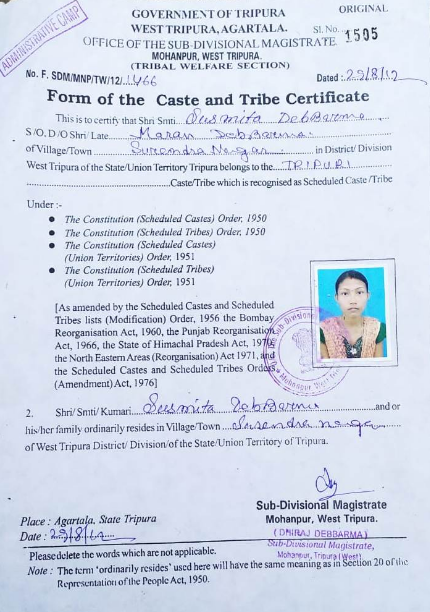 ORIGINAL
ADMINISTRATIVE CAMP
GOVERNMENT OF TRIPURA
WEST TRIPURA, AGARTALA. Sl. No. 1505
OFFICE OF THE SUB-DIVISIONAL MAGISTRATE.
MOHANPUR, WEST TRIPURA.
(TRIBAL WELFARE SECTION)
No. F. SDM/MNP/TW/12/ 1466 Dated : 29/8/12
Form of the Caste and Tribe Certificate
This is to certify that Shri Smti. Susmita DebBarma
S/O, D/O Shri/Late Maran DebBarma
of Village/Town Surendra Nagar in District/ Division
West Tripura of the State/Union Territory Tripura belongs to the TRIPURI
Caste/Tribe which is recognised as Scheduled Caste /Tribe
Under :-
● The Constitution (Scheduled Castes) Order, 1950
● The Constitution (Scheduled Tribes) Order, 1950
● The Constitution (Scheduled Castes)
(Union Territories) Order, 1951
● The Constitution (Scheduled Tribes)
(Union Territories) Order, 1951
[As amended by the Scheduled Castes and Scheduled
Tribes lists (Modification) Order, 1956 the Bombay
Reorganisation Act, 1960, the Punjab Reorganisation
Act, 1966, the State of Himachal Pradesh Act, 1970
the North Eastern Areas (Reorganisation) Act 1971, and
the Scheduled Castes and Scheduled Tribes Orders
(Amendment) Act, 1976]
2. Shri/ Smti/ Kumari. Susmita DebBarma and or
his/her family ordinarily resides in Village/Town Surendra nagar
of West Tripura District/ Division/of the State/Union Territory of Tripura.
Sub-Divisional Magistrate
Mohanpur, West Tripura.
Place : Agartala, State Tripura
(DHIRAJ DEBBARMA)
Date : 29/8/12
Sub-Divisional Magistrate,
Mohanpur, Tripura (West)
Please delete the words which are not applicable.
Note : The term 'ordinarily resides' used here will have the same meaning as in Section 20 of the
Representation of the People Act, 1950.